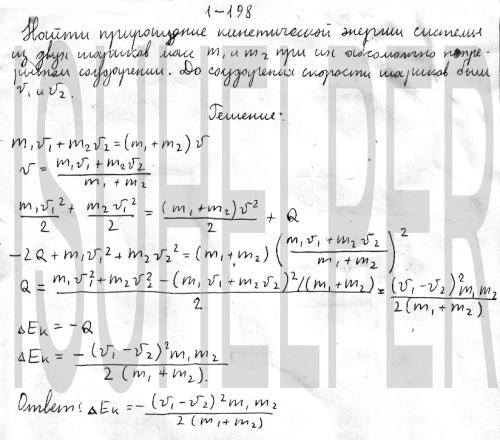 1-198
Найти приращение кинетической энергии системы
из двух шариков масс m₁ и m₂ при их абсолютно неупругом
соударении. До соударения скорости шариков были
v₁ и v₂.
Решение:
m₁v₁ + m₂v₂ = (m₁ + m₂) v
v = (m₁v₁ + m₂v₂)/(m₁ + m₂)
m₁v₁²/2 + m₂v₁²/2 = (m₁ + m₂)v²/2 + Q
-2Q + m₁v₁² + m₂v₂² = (m₁ + m₂) ((m₁v₁ + m₂v₂)/(m₁ + m₂))²
Q = (m₁v₁² + m₂v₂² - (m₁v₁ + m₂v₂)²/(m₁ + m₂))/2 = (v₁ - v₂)² m₁m₂/2(m₁ + m₂)
ΔEк = -Q
ΔEк = -(v₁ - v₂)² m₁m₂/2(m₁ + m₂).
Ответ: ΔEк = -(v₁ - v₂)² m₁m₂/2(m₁ + m₂)
ISUHELPER